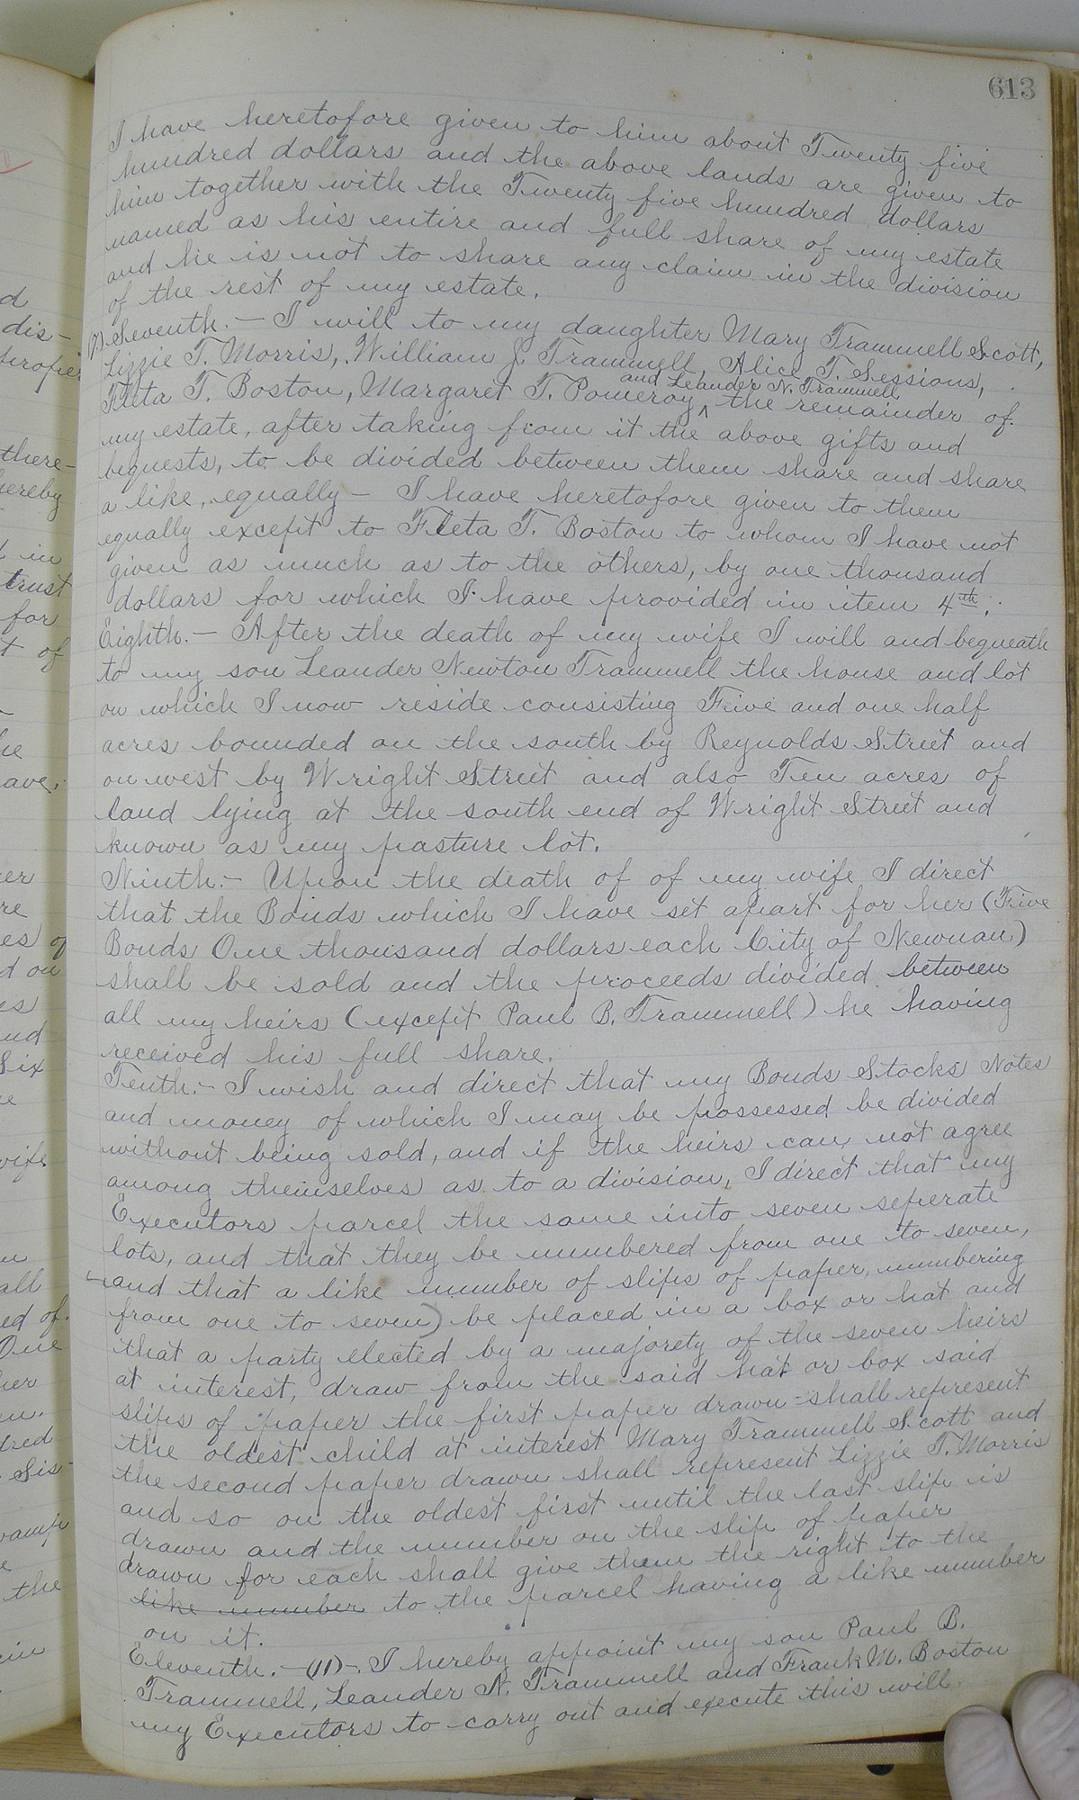 613
I have heretofore given to him about Twenty five
hundred dollars and the above lands are given to
him together with the Twenty five hundred dollars
named as his entire and full share of my estate
and he is not to share any claim in the division
of the rest of my estate.
(7) Seventh.- I will to my daughter Mary Trammell Scott,
Lizzie T. Morris, William J. Trammell, Alice T. Sessions,
and Leander N. Trammell
Fleta T. Boston, Margaret T. Pomeroy ^ the remainder of
my estate, after taking from it the above gifts and
bequests, to be divided between them share and share
a like, equally - I have heretofore given to them
equally except to Fleta T. Boston to whom I have not
given as much as to the others, by one thousand
dollars for which I have provided in item 4th.
Eighth.- After the death of my wife I will and bequeath
to my son Leander Newton Trammell the house and lot
on which I now reside consisting Five and one half
acres bounded on the south by Reynolds Street and
on west by Wright Street and also Ten acres of
land lying at the south end of Wright Street and
known as my pasture lot.
Ninth.- Upon the death of of my wife I direct
that the Bonds which I have set apart for her (Five
Bonds One thousand dollars each City of Newnan)
shall be sold and the proceeds divided between
all my heirs (except Paul B. Trammell) he having
received his full share.
Tenth.- I wish and direct that my Bonds Stocks Notes
and money of which I may be possessed be divided
without being sold, and if the heirs can not agree
among themselves as to a division, I direct that my
Executors parcel the same into seven seperate
lots, and that they be numbered from one to seven,
and that a like number of slips of paper, numbering
from one to seven) be placed in a box or hat and
that a party elected by a majorety of the seven heirs
at interest, draw from the said hat or box said
slips of paper the first paper drawn shall represent
the oldest child at interest Mary Trammell Scott and
the second paper drawn shall represent Lizzie T. Morris
and so on the oldest first until the last slip is
drawn and the number on the slip of paper
drawn for each shall give them the right to the
like number to the parcel having a like number
on it.
Eleventh.-(11)-. I hereby appoint my son Paul B.
Trammell, Leander N. Trammell and Frank M. Boston
my Executors to carry out and execute this will.